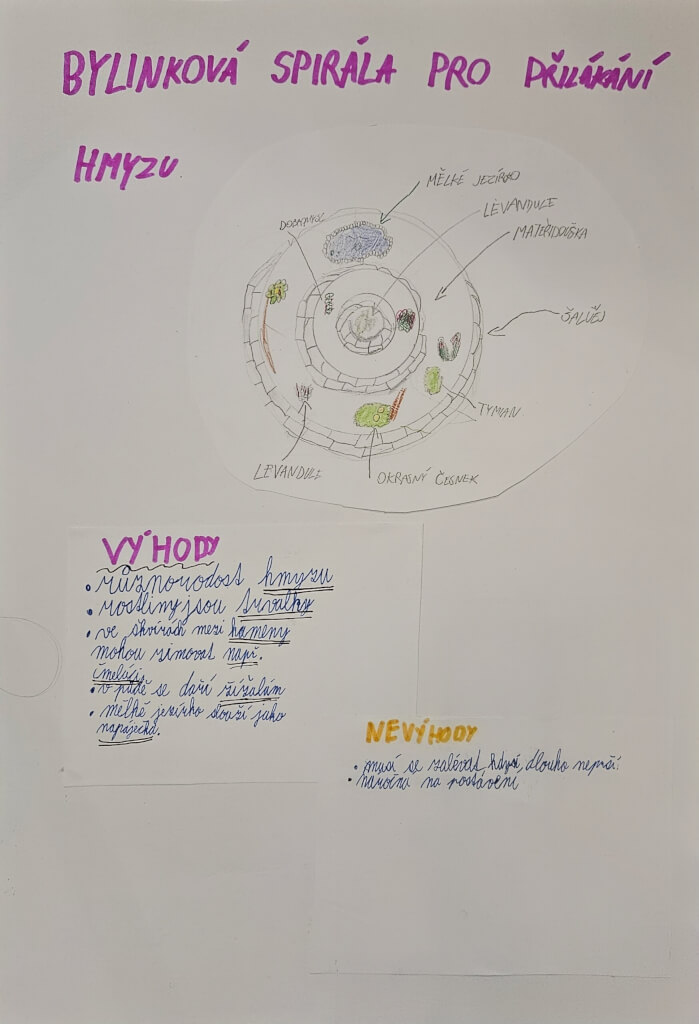 BYLINKOVÁ SPIRÁLA PRO PŘILÁKÁNÍ
HMYZU
MĚLKÉ JEZÍRKO
LEVANDULE
DOBROMYSL
MATEŘÍDOUŠKA
ŠALVĚJ
TYMAN
LEVANDULE
OKRASNÝ ČESNEK
VÝHODY
• různorodost hmyzu
• rostliny jsou trvalky
• ve škvírách mezi kameny
mohou zimovat např.
čmeláci.
• v půdě se daří žížalám
• mělké jezírko slouží jako
napáječka.
NEVÝHODY
• musí se zalévat, když dlouho neprší.
• náročná na postavení